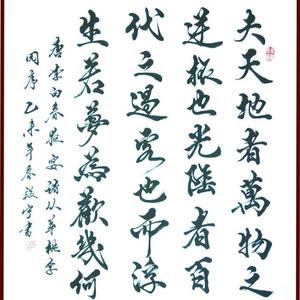 夫天地者萬物之
逆旅也光陰者百
代之過客也而浮
生若夢為歡幾何
唐李白春夜宴諸从弟桃李
园序乙未年春宇書